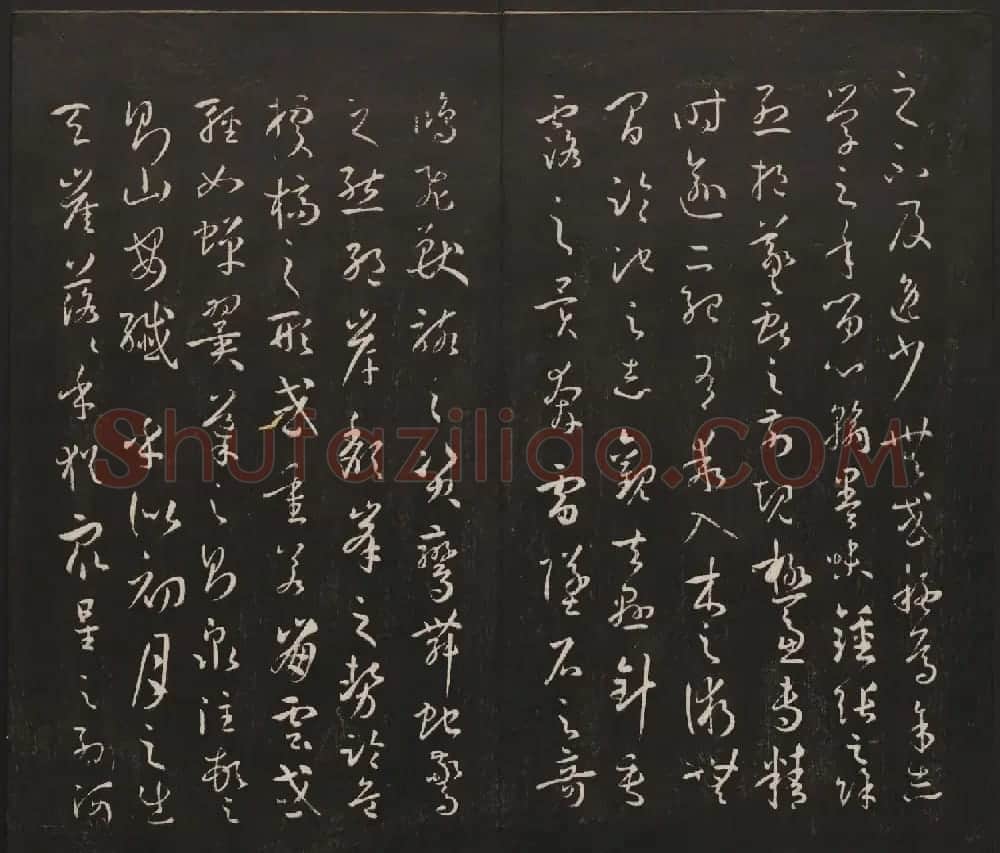 之不及逸少無或疑焉余志
學之年留心翰墨味鍾張之餘
烈挹羲獻之前規極慮專精
時逾二紀有乖入木之術無
間臨池之志觀夫懸針垂
露之異奔雷墜石之奇
鴻飛獸駭之資鸞舞蛇驚
之態絕岸頹峯之勢臨危
據槁之形或重若崩雲或
輕如蟬翼導之則泉注頓之
則山安纖〻乎似初月之出
天崖落〻乎猶衆星之列河
Shufaziliao.COM